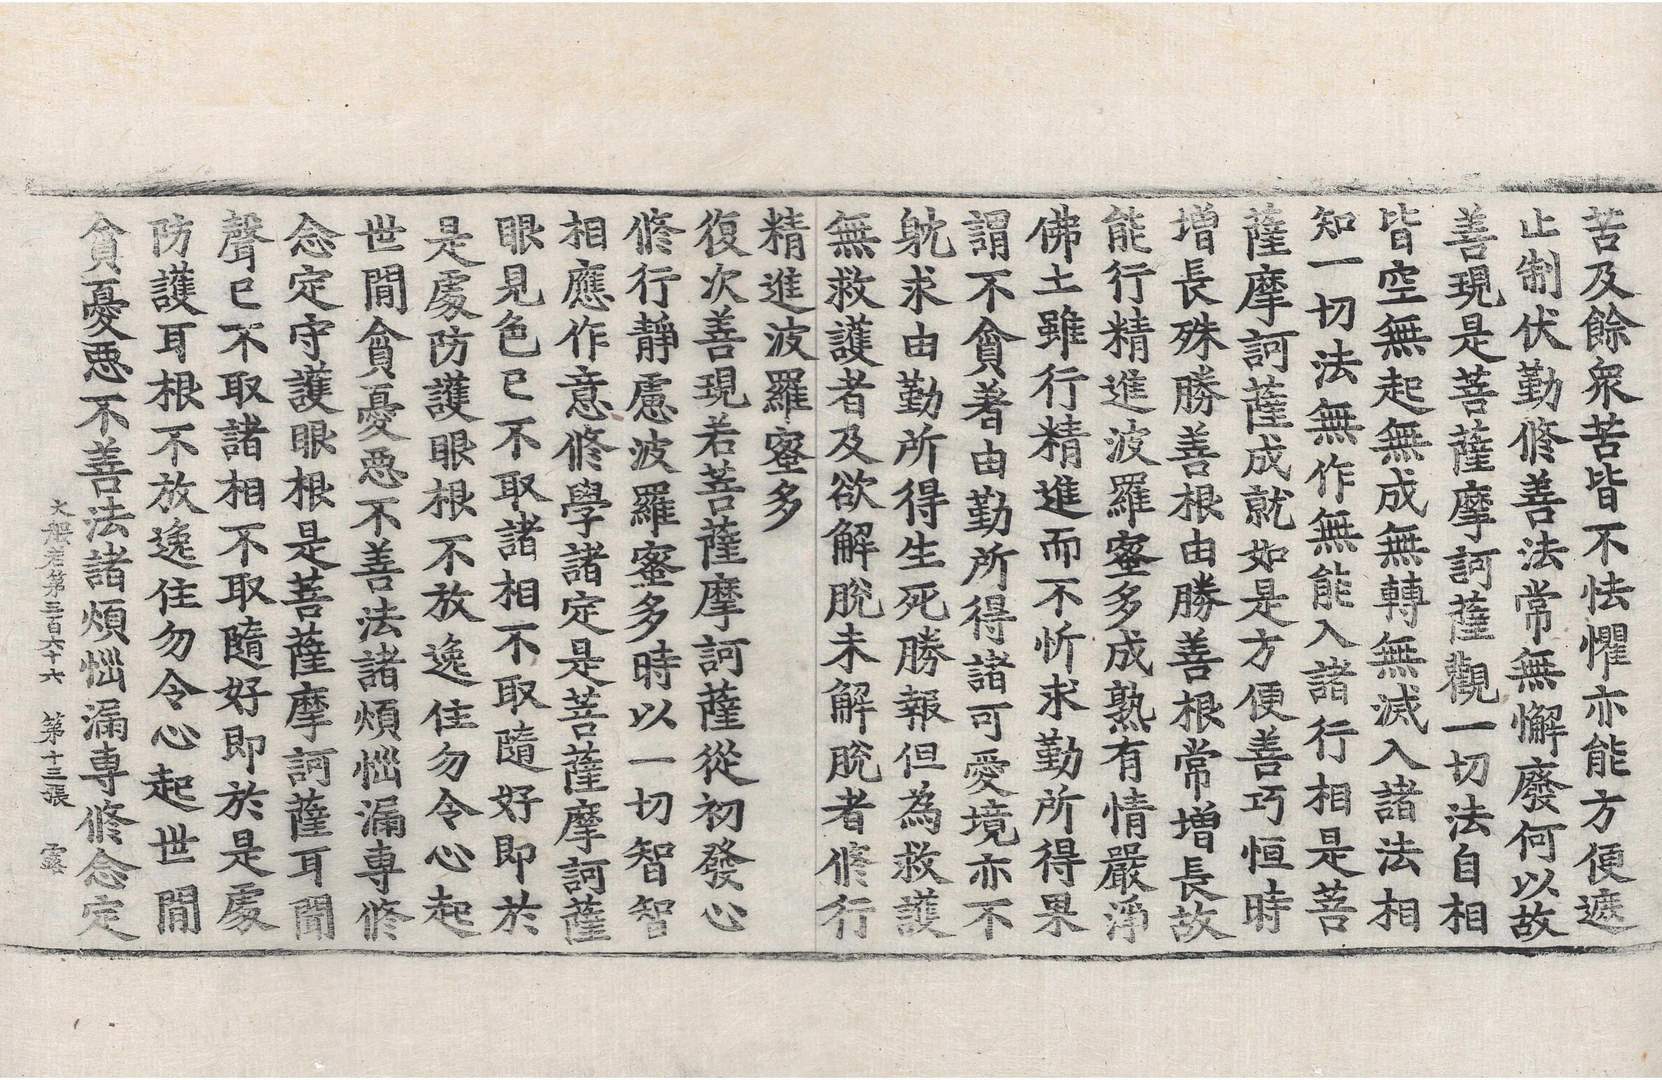 苦及餘衆苦皆不怯懼亦能方便遮
止制伏勤修善法常無懈廢何以故
善現是菩薩摩訶薩觀一切法自相
皆空無起無成無轉無滅入諸法相
知一切法無作無能入諸行相是菩
薩摩訶薩成就如是方便善巧恒時
增長殊勝善根由勝善根常增長故
能行精進波羅蜜多成熟有情嚴淨
佛土雖行精進而不忻求勤所得果
謂不貪著由勤所得諸可愛境亦不
躭求由勤所得生死勝報但為救護
無救護者及欲解脫未解脫者修行
精進波羅蜜多
復次善現若菩薩摩訶薩從初發心
修行靜慮波羅蜜多時以一切智智
相應作意修學諸定是菩薩摩訶薩
眼見色已不取諸相不取隨好即於
是處防護眼根不放逸住勿令心起
世間貪憂惡不善法諸煩惱漏專修
念定守護眼根是菩薩摩訶薩耳聞
聲已不取諸相不取隨好即於是處
防護耳根不放逸住勿令心起世間
貪憂惡不善法諸煩惱漏專修念定
大般若第三百六十六 第十三張 露